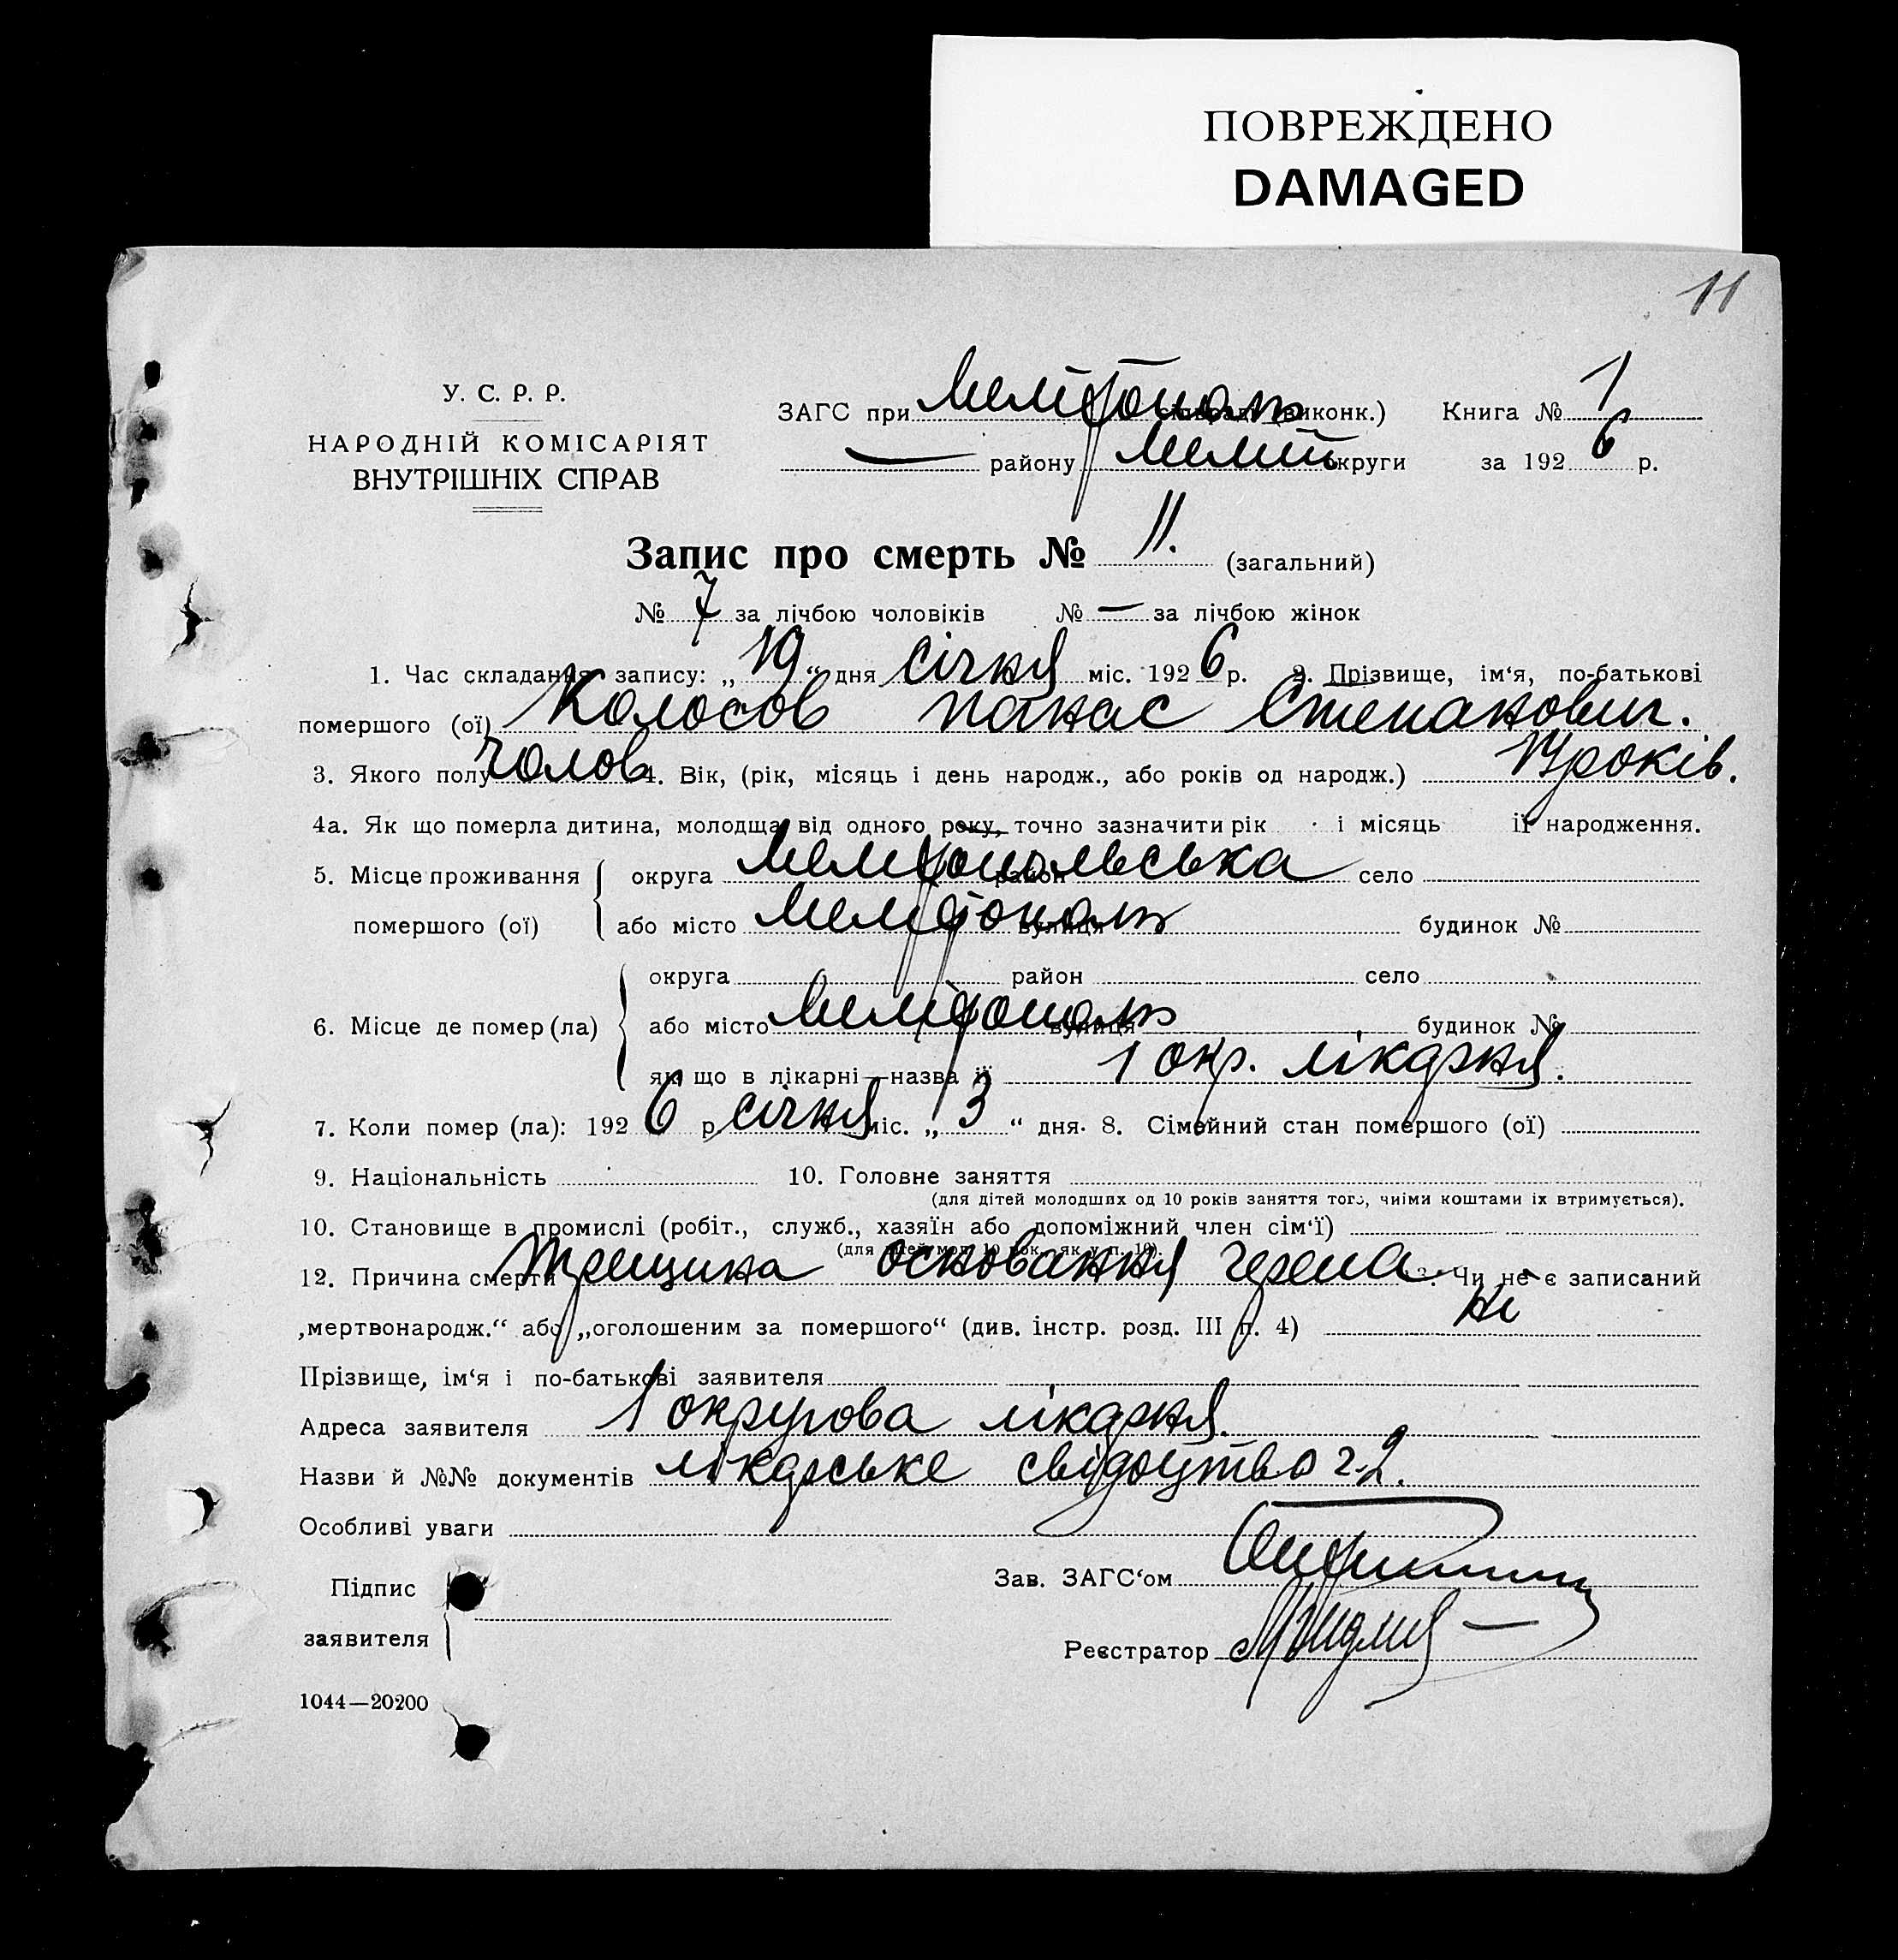 ПОВРЕЖДЕНО
DAMAGED
11
У. С. Р. Р.
НАРОДНІЙ КОМІСАРІЯТ
ВНУТРІШНІХ СПРАВ
ЗАГС при Мелітополь (виконк.) Книга № 1
— району Меліт округи за 1926 р.
Запис про смерть № 11. (загальний)
№ 7 за лічбою чоловіків № — за лічбою жінок
1. Час складання запису: „19“ дня січня міс. 1926 р. 2. Прізвище, ім'я, по-батькові
помершого (ої) Колосов Панас Степанович.
3. Якого полу чолов 4. Вік, (рік, місяць і день народж., або років од народж.) років.
4а. Як що померла дитина, молодща від одного року, точно зазначити рік і місяць її народження.
5. Місце проживання округа Мелітопольська район село
помершого (ої) або місто Мелітополь вулиця будинок №
округа район село
6. Місце де помер (ла) або місто Мелітополь вулиця будинок №
як що в лікарні—назва її 1 окр. лікарня.
7. Коли помер (ла): 1926 р. січня міс. „3“ дня. 8. Сімейний стан помершого (ої)
9. Національність 10. Головне заняття
(для дітей молодших од 10 років заняття того, чиїми коштами їх втримується).
10. Становище в промислі (робіт., служб., хазяїн або допоміжний член сім'ї)
(для дітей мол. 10 рок. як у п. 10).
12. Причина смерти трещина основання черепа 13. Чи не є записаний
„мертвонародж.“ або „оголошеним за помершого“ (див. інстр. розд. III п. 4) ні
Прізвище, ім'я і по-батькові заявителя
Адреса заявителя 1 округова лікарня.
Назви й №№ документів лікарське свідоцтво ч. 2.
Особливі уваги
Підпис
заявителя
Зав. ЗАГС'ом
Реєстратор
1044—20200